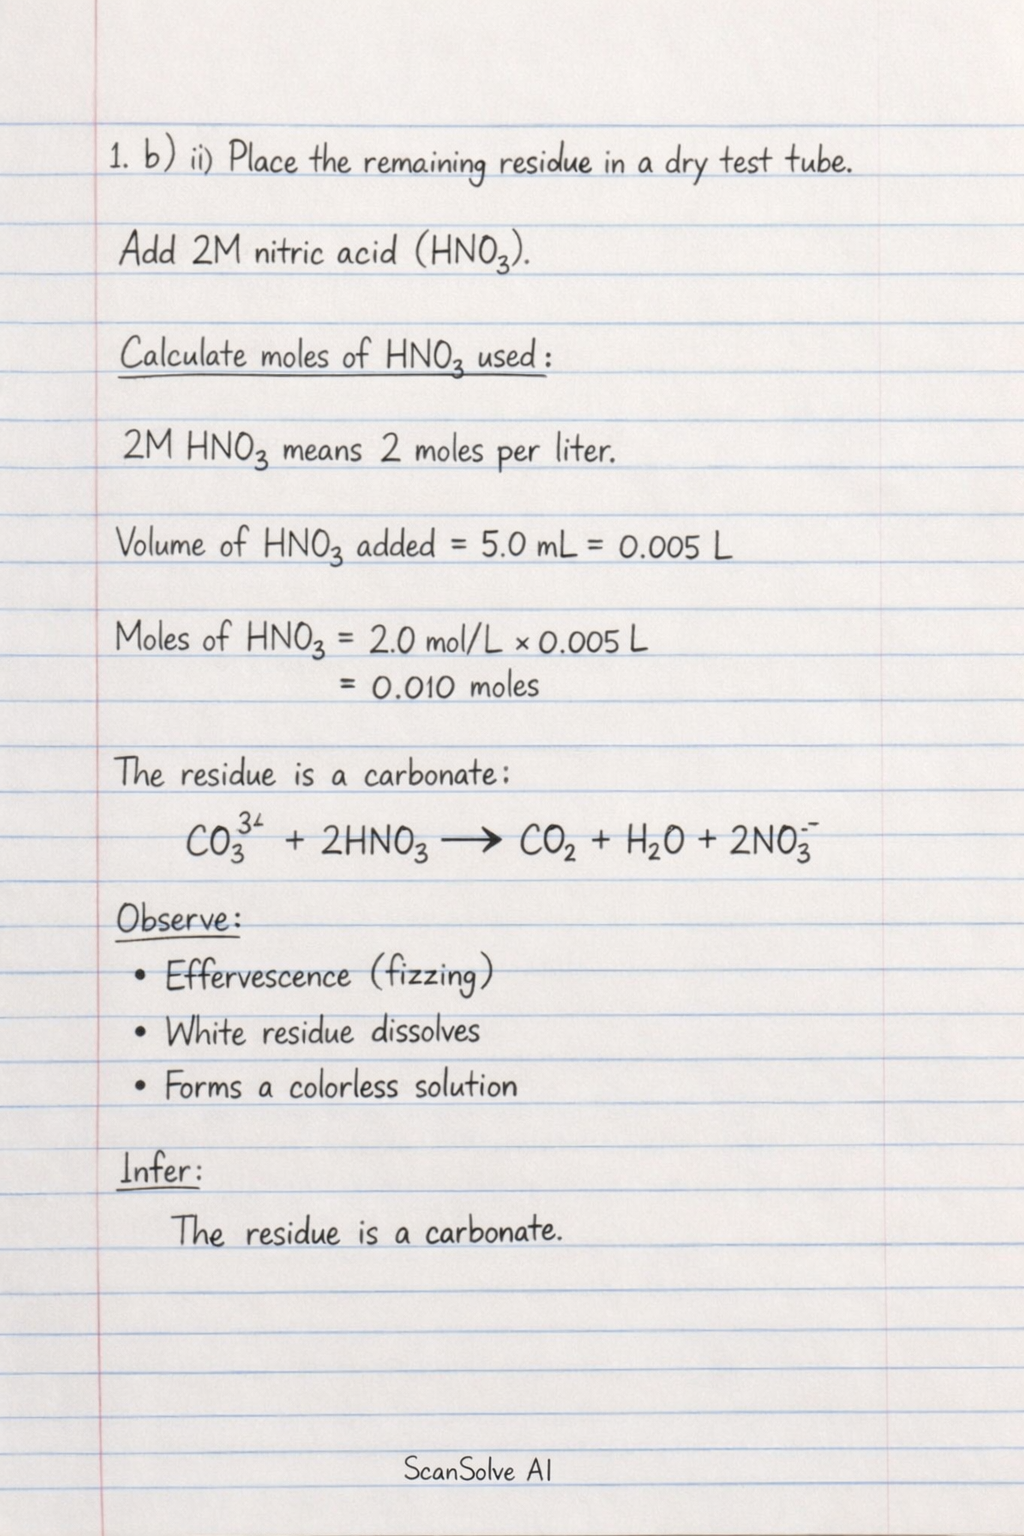 1. b) ii) Place the remaining residue in a dry test tube.
Add 2M nitric acid (HNO₃).
Calculate moles of HNO₃ used:
2M HNO₃ means 2 moles per liter.
Volume of HNO₃ added = 5.0 mL = 0.005 L
Moles of HNO₃ = 2.0 mol/L × 0.005 L
= 0.010 moles
The residue is a carbonate:
CO₃³⁻ + 2HNO₃ → CO₂ + H₂O + 2NO₃⁻
Observe:
• Effervescence (fizzing)
• White residue dissolves
• Forms a colorless solution
Infer:
The residue is a carbonate.
ScanSolve AI